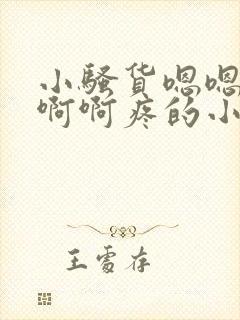 小骚货嗯嗯
啊啊疼的小
王雪存